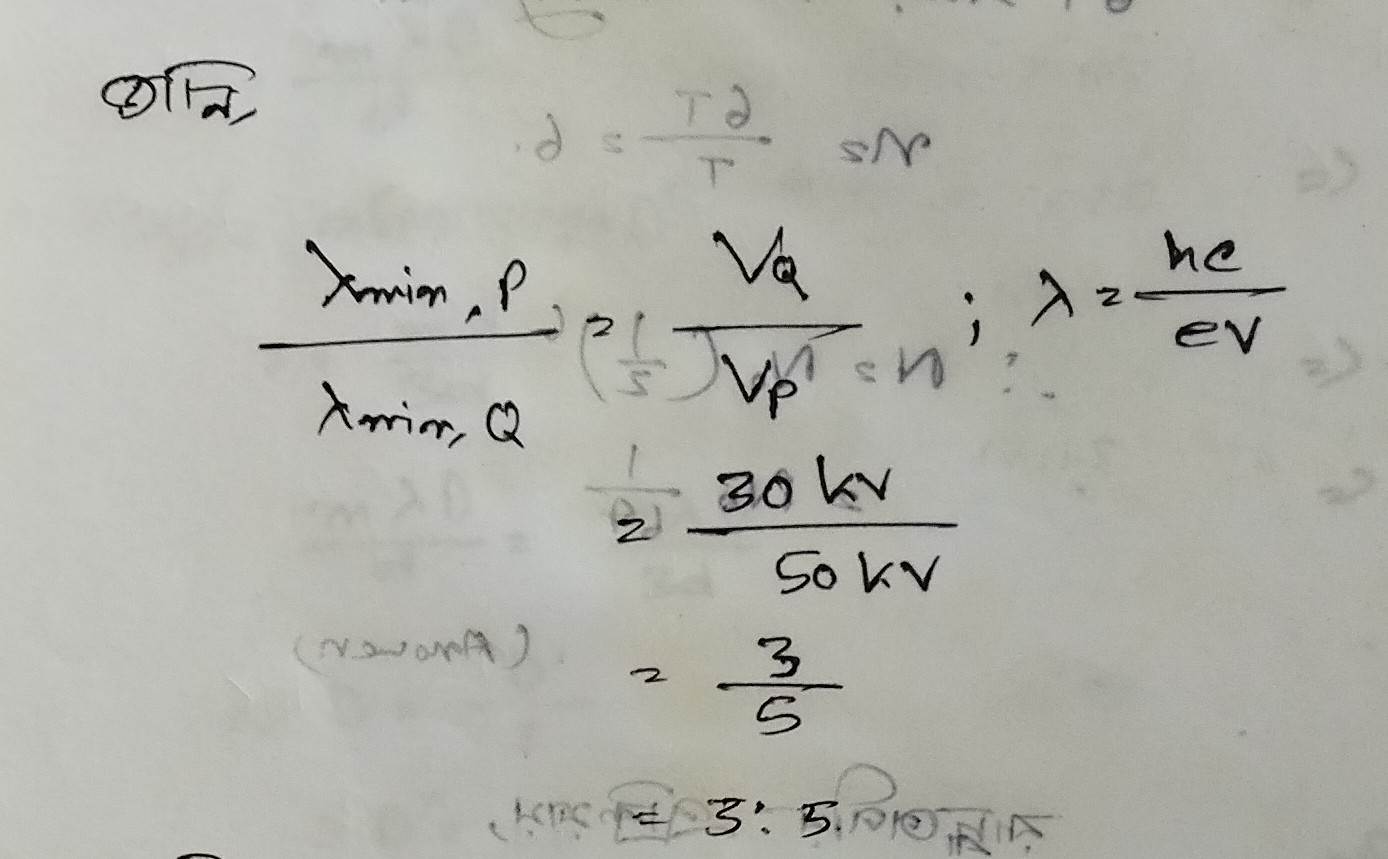 জানি,
λmin, P / λmin, Q = VQ / VP ; λ = hc / eV
= 30 kV / 50 kV
= 3 / 5
= 3 : 5.